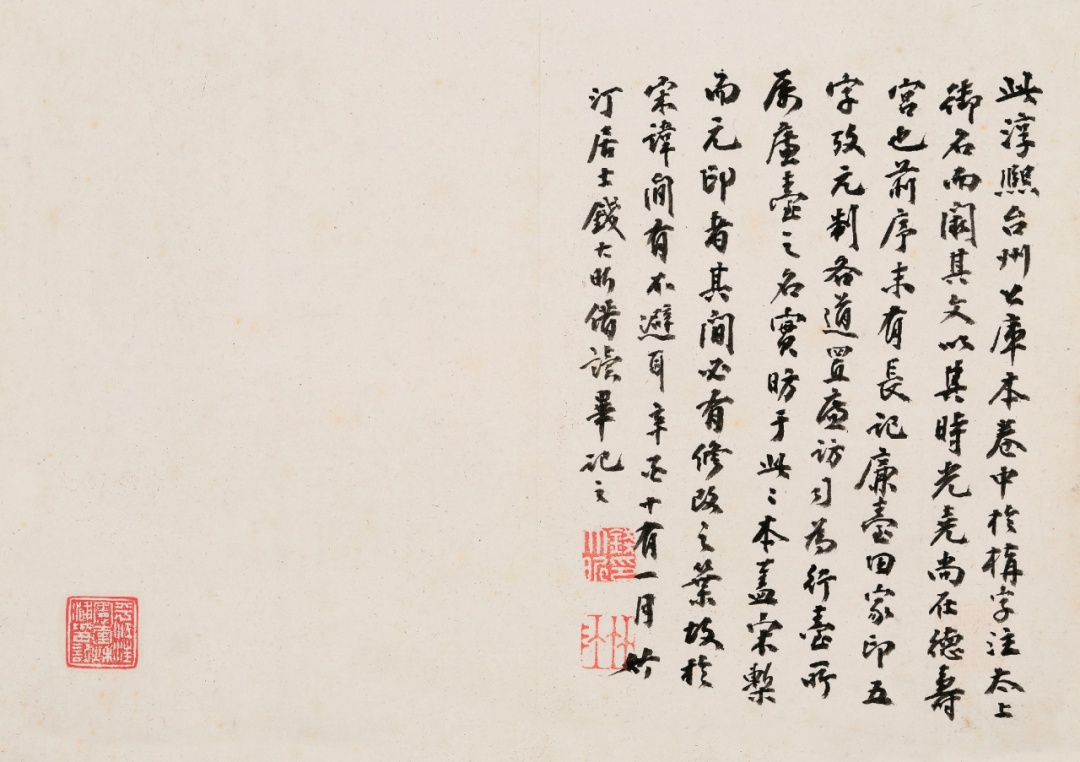 此淳熙台州公庫本卷中於構字注太上
御名而闕其文以其時光堯尚在德壽
宮也前序末有長記廉臺田家印五
字攷元制各道置廉訪司為行臺所
屬廉臺之名實昉于此〻本蓋宋槧
而元印者其間必有修改之葉故於
宋諱間有不避耳辛酉十有一月竹
汀居士錢大昕借讀畢記之
竹汀